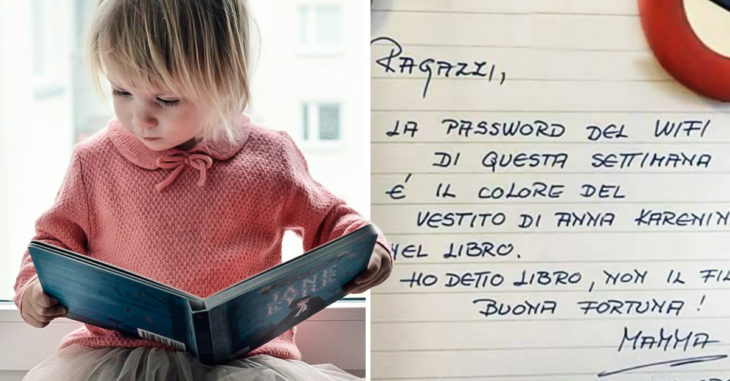 JANE
EYRE
RAGAZZI,
LA PASSWORD DEL WIFI
DI QUESTA SETTIMANA
E' IL COLORE DEL
VESTITO DI ANNA KARENIN
NEL LIBRO.
HO DETTO LIBRO, NON IL FIL
BUONA FORTUNA!
MAMMA